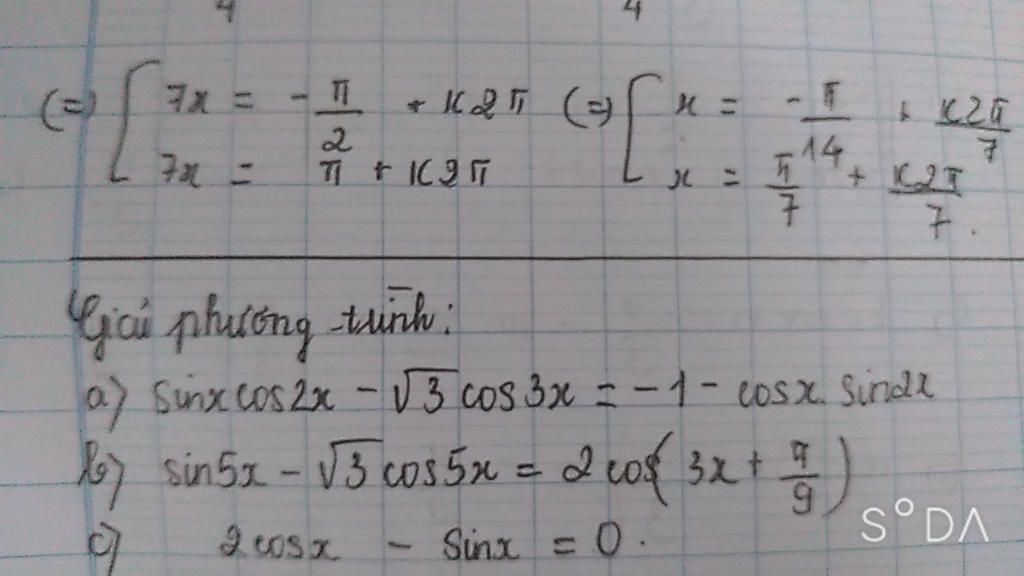 4 4
(=) [ 7x = -π/2 + k2π (=) [ x = -π/14 + k2π/7
7x = π + k2π x = π/7 + k2π/7.
Giải phương trình:
a) sinx cos2x - √3 cos3x = -1 - cosx. sin2x
b) sin5x - √3 cos5x = 2 cos( 3x + π/9 )
c) 2cosx - sinx = 0.
S°DA